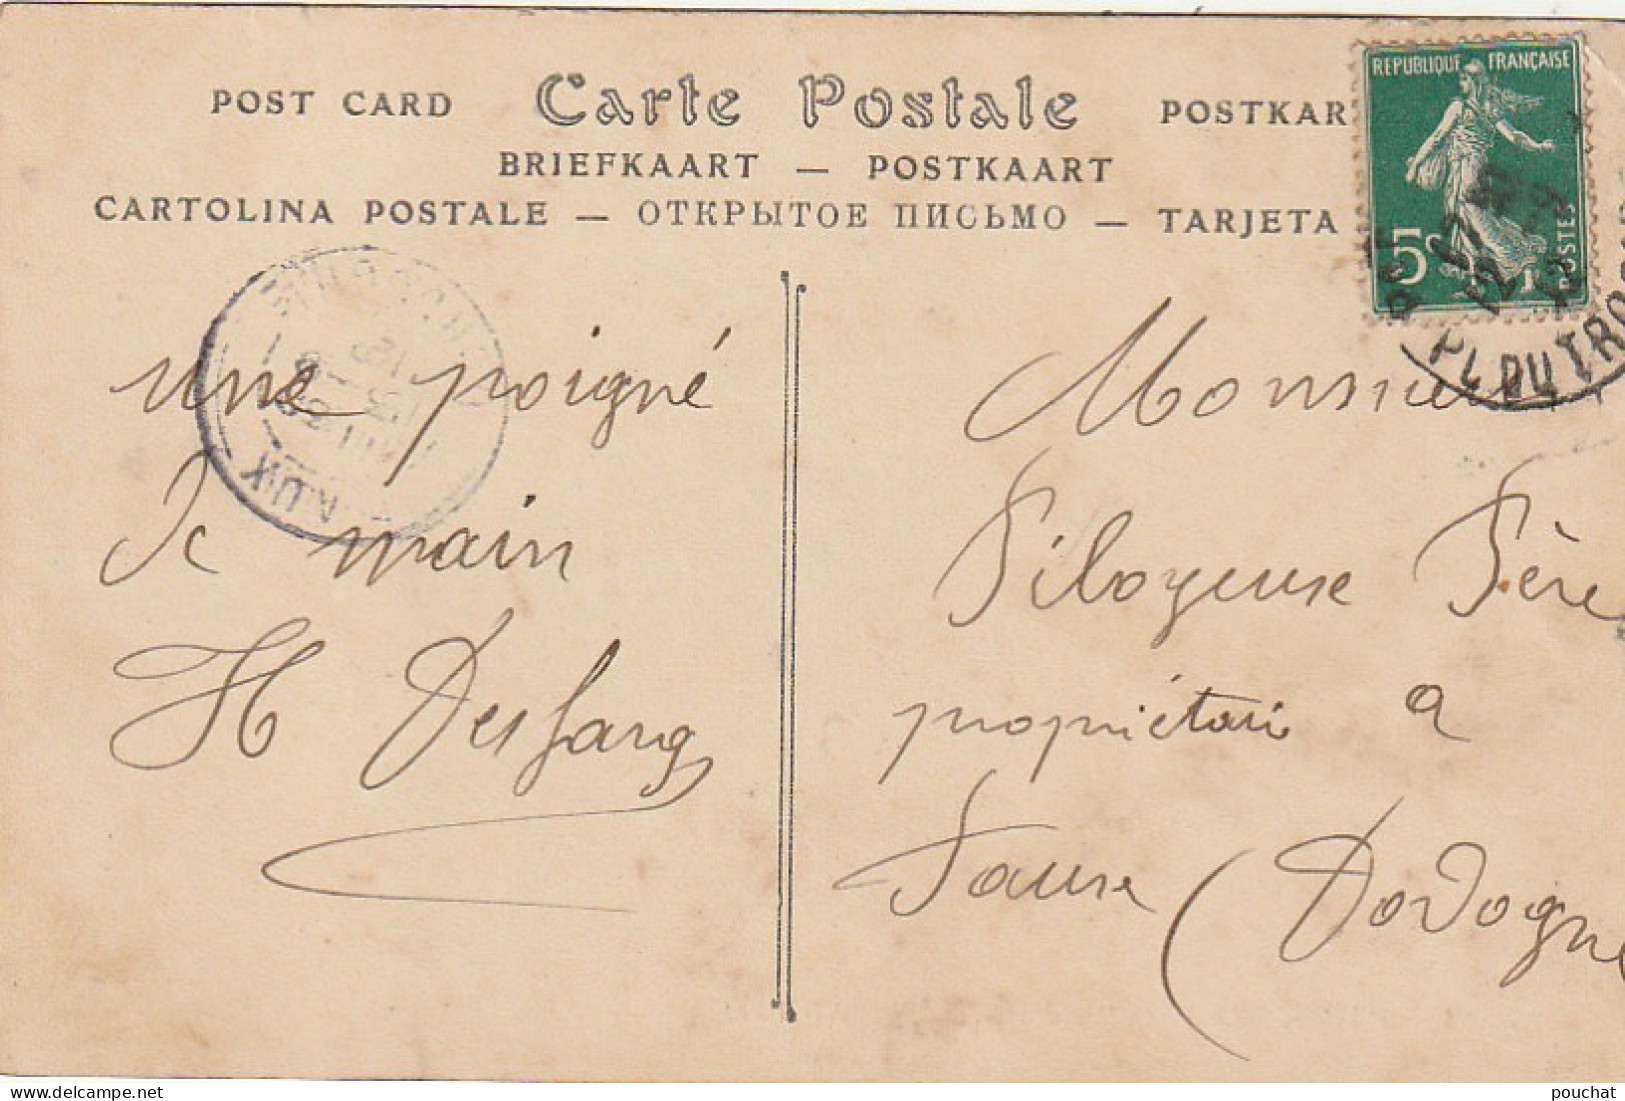 POST CARD Carte Postale POSTKAR
BRIEFKAART — POSTKAART
CARTOLINA POSTALE — ОТКРЫТОЕ ПИСЬМО — TARJETA
REPUBLIQUE FRANÇAISE
5c POSTES
PL DU TROC
une poigné
de main
H Desfarg
Monsieur
Filoyeuse Père
propriétari a
Sause (Dordogne
pouchat